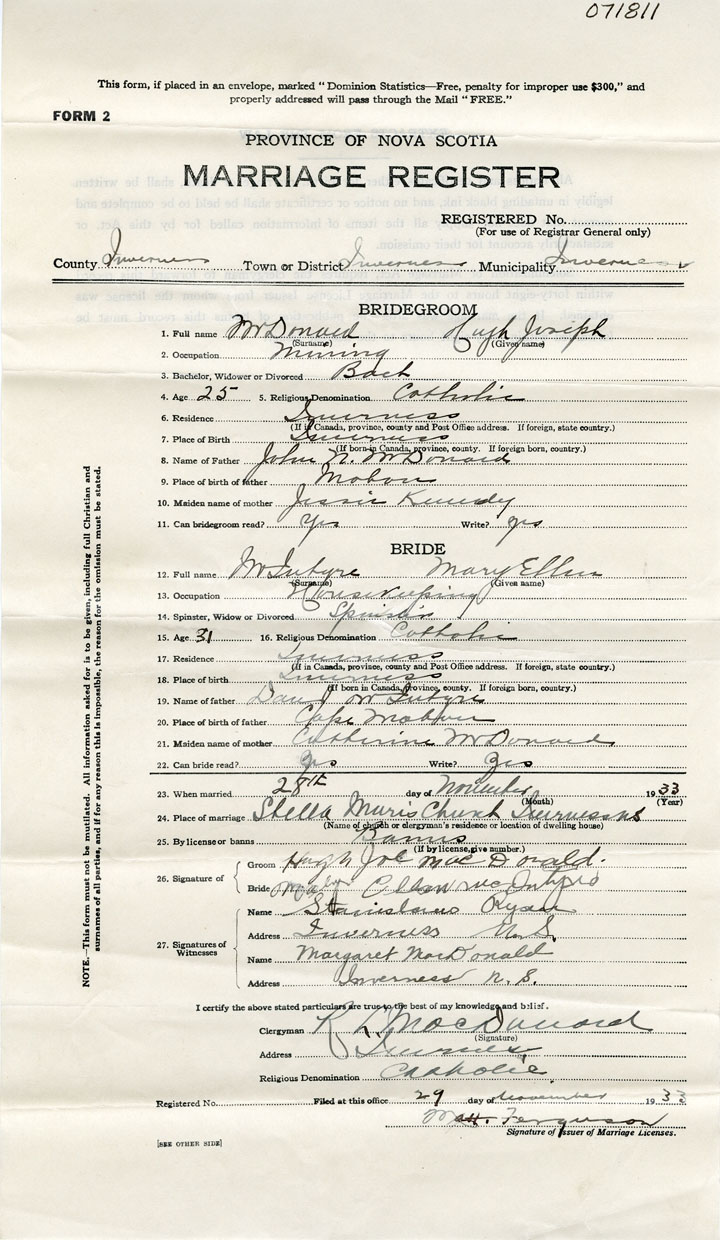 071811
This form, if placed in an envelope, marked "Dominion Statistics—Free, penalty for improper use $300," and
properly addressed will pass through the Mail "FREE."
FORM 2
PROVINCE OF NOVA SCOTIA
MARRIAGE REGISTER
REGISTERED No.
(For use of Registrar General only)
County Inverness Town or District Inverness Municipality Inverness
BRIDEGROOM
1. Full name McDonald Hugh Joseph
(Surname) (Given name)
2. Occupation Mining
3. Bachelor, Widower or Divorced Bach
4. Age 25 5. Religious Denomination Catholic
6. Residence Inverness
(If in Canada, province, county and Post Office address. If foreign, state country.)
7. Place of Birth Inverness
(If born in Canada, province, county. If foreign born, country.)
8. Name of Father John N. McDonald
9. Place of birth of father Mabou
10. Maiden name of mother Jessie Kennedy
11. Can bridegroom read? Yes Write? yes
BRIDE
12. Full name McIntyre Mary Ellen
(Surname) (Given name)
13. Occupation Housekeeping
14. Spinster, Widow or Divorced Spinster
15. Age 31 16. Religious Denomination Catholic
17. Residence Inverness
(If in Canada, province, county and Post Office address. If foreign, state country.)
18. Place of birth Inverness
(If born in Canada, province, county. If foreign born, country.)
19. Name of father Dan J McIntyre
20. Place of birth of father Cape Mabou
21. Maiden name of mother Catherine McDonald
22. Can bride read? yes Write? yes
23. When married 28th day of November 1933
(Month) (Year)
24. Place of marriage Stella Maris Church Inverness
(Name of church or clergyman's residence or location of dwelling house)
25. By license or banns Banns
(If by license, give number.)
26. Signature of
Groom Hugh Joe MacDonald.
Bride Mary Ellen McIntyre
27. Signatures of Witnesses
Name Stanislaus Ryan
Address Inverness N.S.
Name Margaret MacDonald
Address Inverness N.S.
I certify the above stated particulars are true to the best of my knowledge and belief.
Clergyman MacDonald
(Signature)
Address Inverness
Religious Denomination Catholic
Registered No. Filed at this office 29 day of November 1933
Matt. Ferguson
Signature of Issuer of Marriage Licenses.
[SEE OTHER SIDE]
NOTE.—This form must not be mutilated. All information asked for is to be given, including full Christian and
surnames of all parties, and if for any reason this is impossible, the reason for the omission must be stated.